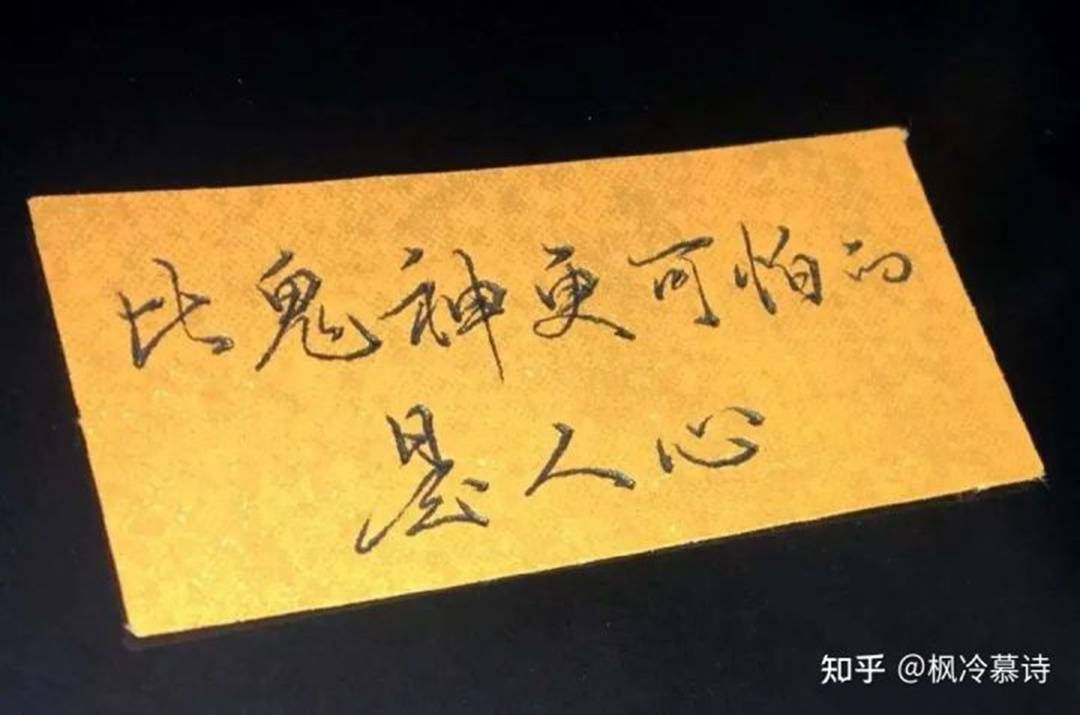 比鬼神更可怕的
是人心
知乎 @枫冷慕诗